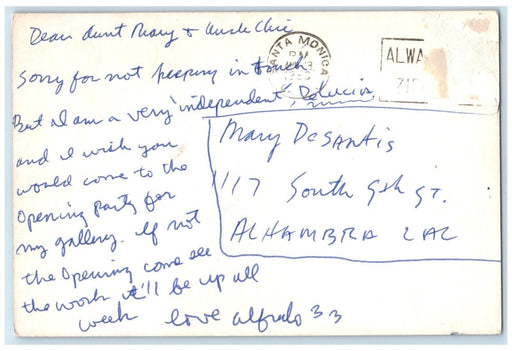 Dear Aunt Mary + Uncle Chic
Sorry for not keeping in touch
But I am a very "independent"
and I wish you
would come to the
Opening party for
my gallery. If not
the Opening come see
the work it'll be up all
week love alfredo 33
SANTA MONICA
PM
ALWA
ZIP
Mary DeSantis
1117 South 9th St.
ALHAMBRA CAL